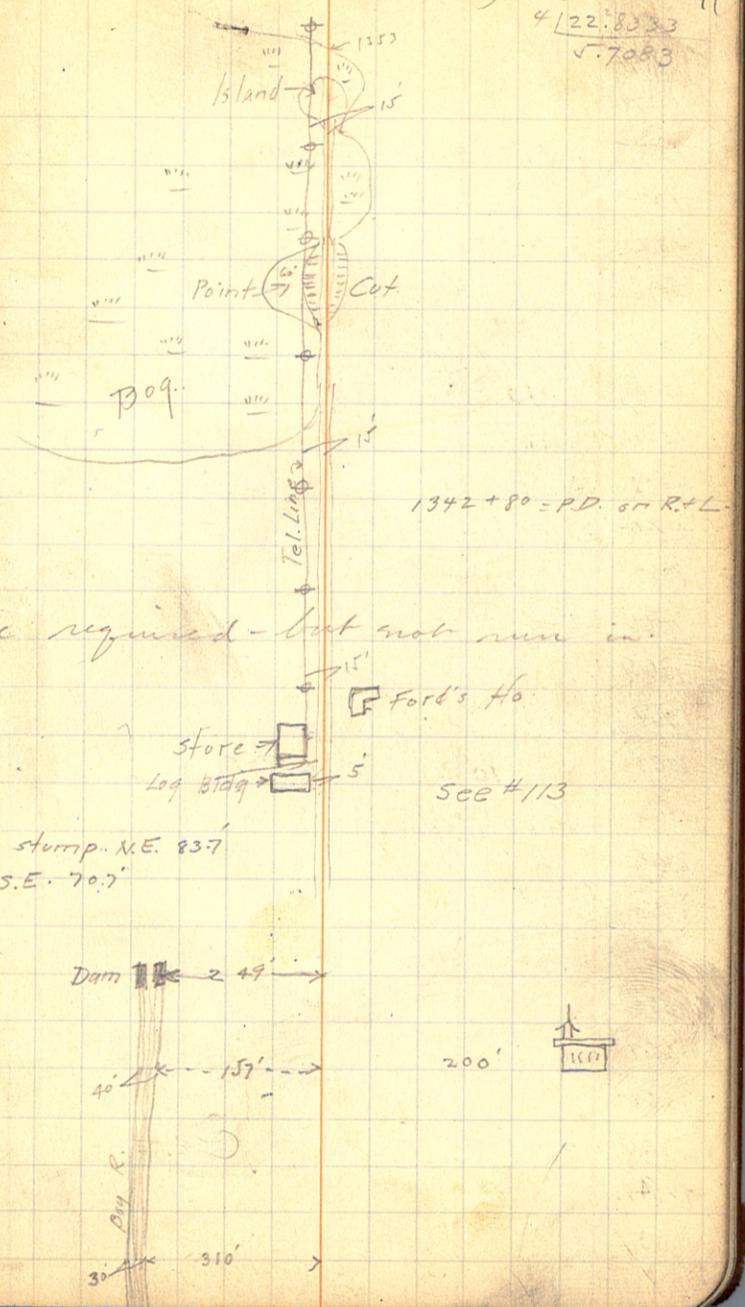 11
4 | 22.8333
5.7083
1353
Island
15'
15
15
Point
15'
Cut
Bog.
15'
Tel. Line
1342 + 80 = P.D. on R.+L.
required - but not run in.
15'
Ford's Ho
Store
Log Bldg
5'
See #113
stump. N.E. 83.7'
S.E. 70.7'
Dam
249'
40'
157'
200'
Bay R.
30'
310'